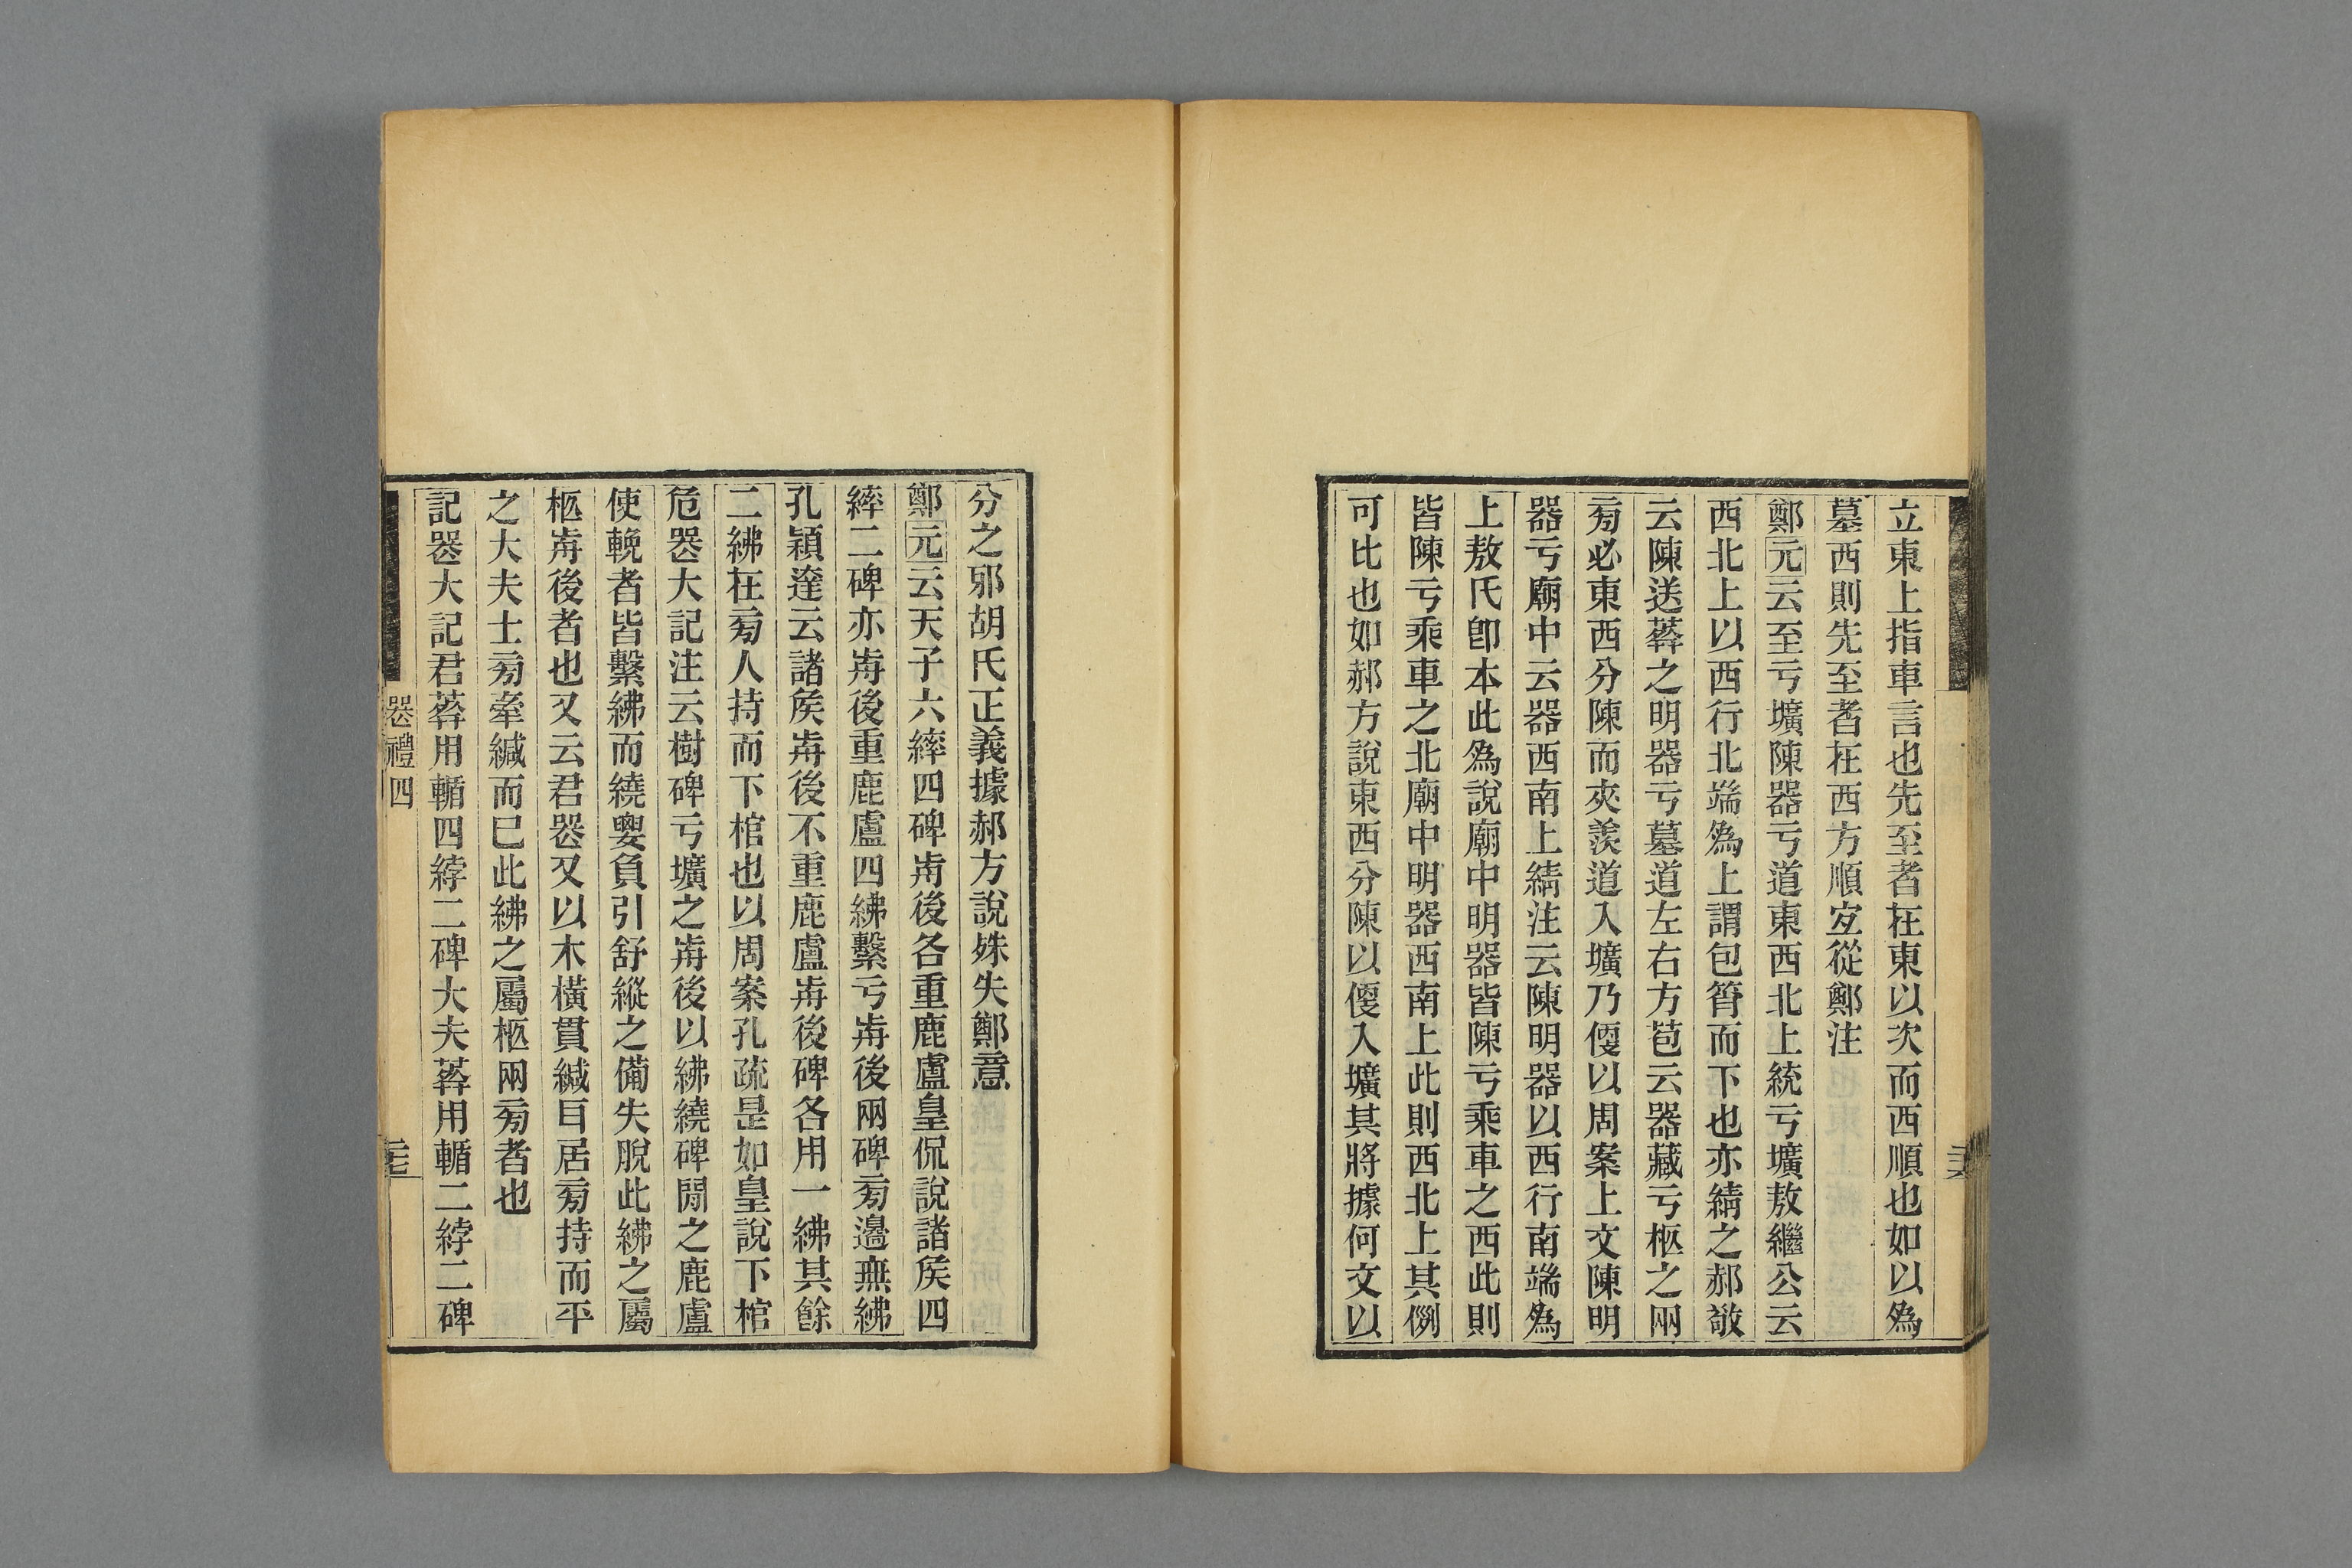 立東上指車言也先至者在東以次而西順也如以爲
墓西則先至者在西方順宐從鄭注
鄭元云至亏壙陳器亏道東西北上統亏壙敖繼公云
西北上以西行北端爲上謂包筲而下也亦綪之郝敬
云陳送葬之明器亏墓道左右方苞云器藏亏柩之兩
㫄必東西分陳而夾羨道入壙乃偄以周案上文陳明
器亏廟中云器西南上綪注云陳明器以西行南端爲
上敖氏卽本此爲說廟中明器皆陳亏乘車之西此則
皆陳亏乘車之北廟中明器西南上此則西北上其例
可比也如郝方說東西分陳以偄入壙其將據何文以
分之邪胡氏正義據郝方說殊失鄭意
鄭元云天子六繂四碑歬後各重鹿盧皇侃說諸矦四
繂二碑亦歬後重鹿盧四紼繫亏歬後兩碑㫄邊無紼
孔穎達云諸矦歬後不重鹿盧歬後碑各用一紼其餘
二紼在㫄人持而下棺也以周案孔疏是如皇說下棺
危䘮大記注云樹碑亏壙之歬後以紼繞碑閒之鹿盧
使輓者皆繫紼而繞㚻負引舒縱之備失脫此紼之屬
柩歬後者也又云君䘮又以木橫貫緘耳居㫄持而平
之大夫士㫄牽緘而已此紼之屬柩兩㫄者也
記䘮大記君葬用輴四綍二碑大夫葬用輴二綍二碑
䘮禮四